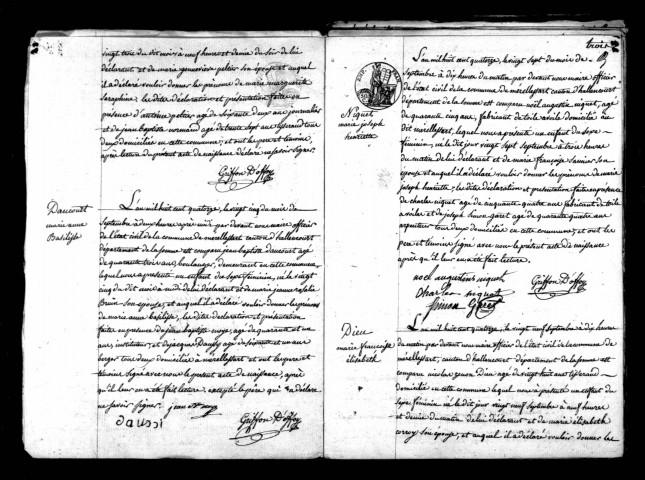 vingt trois du dit mois à neuf heure et demie du soir de lui
déclarant et de marie genevieve peltier son épouse et auquel
il a déclaré vouloir donner les prénoms de marie marguerite
Seraphine; les dite déclaration et présentation faite en
présence d'antoine peltier age de soixante deux ans journalier
et de jean baptiste normand age de trente sept ans tisserand tous
deux domiciliés en cette commune; et ont le pere et témoins,
après lecture du présent acte de naissance déclaré ne savoir signer.
Griffon D'offoy
Daucourt
marie anne
Basilisse
L'an mil huit cent quatorze, le vingt cinq du mois de
Septembre à deux heure, après midi par devant nous maire officier
de l'état civil de la commune de merellessart canton d'hallencourt
département de la somme est comparu jean baptiste daucourt agé
de quarante trois ans, boulanger, demeurant en cette commune,
lequel nous a présenté un enfant du sexe féminin, né le vingt
cinq du dit mois à midi de lui déclarant et de marie jeanne rosalie
son épouse, et auquel il a déclaré vouloir donner les prénoms
de marie anne basilisse, les dite déclaration et présentation
faite en présence de jean baptiste noyé, age de quarante et un
ans, instituteur, et de jacques age de soixante et un ans
berger tous deux domiciliés à merellessart et ont les pere et
témoins signé avec nous le présent acte de naissance, après
qu'il leur en a été fait lecture. excepté le père qui a déclaré
ne savoir signer.
daussi
Griffon D'offoy
trois
Niquet
marie joseph
henriette
L'an mil huit cent quatorze, le vingt sept du mois de
Septembre à dix heure du matin par devant nous maire officier
de l'état civil de la commune de merellessart, canton d'hallencourt
département de la somme est comparu noël augustin niquet, agé
de quarante cinq ans, fabricant de toile à voile domicilié, au
dit merellessart, lequel nous a présenté un enfant du sexe
féminin, né le dit jour vingt sept septembre à trois heure
du matin de lui déclarant et de marie françoise son
épouse et auquel il a déclaré vouloir donner les prénoms de marie
joseph henriette; les dite déclaration et présentation faite en présence
de charles niquet age de cinquante quatre ans fabricant de toile
à voiles et de joseph simon garet age de quarante quatre ans
arpenteur tous deux domiciliés en cette commune; et ont les
pere et témoins signé avec nous le présent acte de naissance
après qu'il leur en a été fait lecture.
noel augustins niquet
Charles niquet
Simon Garet
Griffon D'offoy
Dieu
marie françoise
élisabeth
L'an mil huit cent quatorze, le vingt neuf septembre à dix heure
du matin par devant nous maire officier de l'état civil de la commune de
merellessart, canton d'hallencourt département de la somme est
comparu nicolas age de vingt huit ans tisserand
domicilié en cette commune lequel nous a présenté un enfant du
sexe féminin né le dit jour vingt neuf septembre à neuf heure
et demie du matin de lui déclarant et de marie élisabeth
son épouse, et auquel il a déclaré vouloir donner les